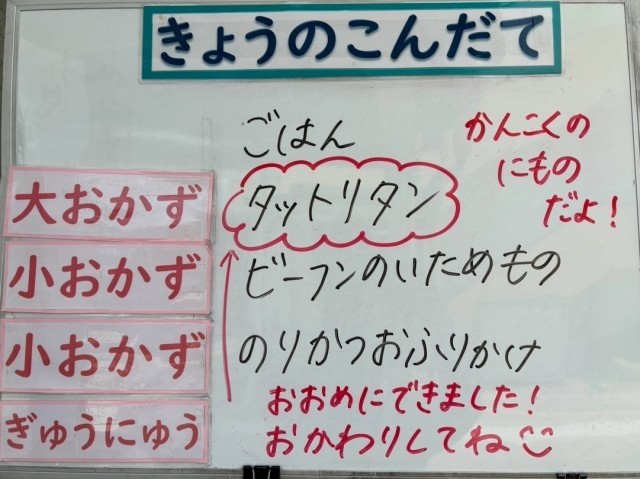 きょうのこんだて
ごはん
かんこくの
にもの
だよ!
大おかず タットリタン
小おかず ビーフンのいためもの
小おかず のりかつおふりかけ
おおめにできました!
ぎゅうにゅう おかわりしてね